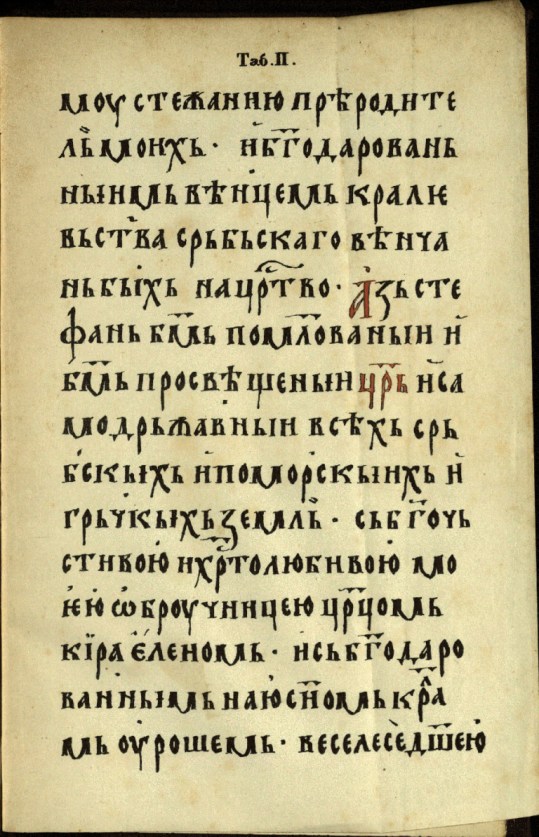 Таб. II.
моу стежанию прѣродите
ль моихь · и бг҃одаровань
ныимь вѣнцемь кралѥ
вьства срьбьскаго вѣнча
нь быхь на црⷭ҇тво · Азь сте
фань бм҃ь помл҃ованыи и
бм҃ь просвѣщеныи цр҃ь и са
модрьжавныи всѣхь срь
бскыхь и поморскыихь и
грьчкыхь земль · сь бг҃очь
стивою и хрⷭ҇толюбивою мо
ѥю ѡброучницею црⷪ҇цомь
кіра еленомь · и сь бг҃ода ро
ванныимь наю сн҃омь кра҃
мь оурошемь · веселе се дш҃ею